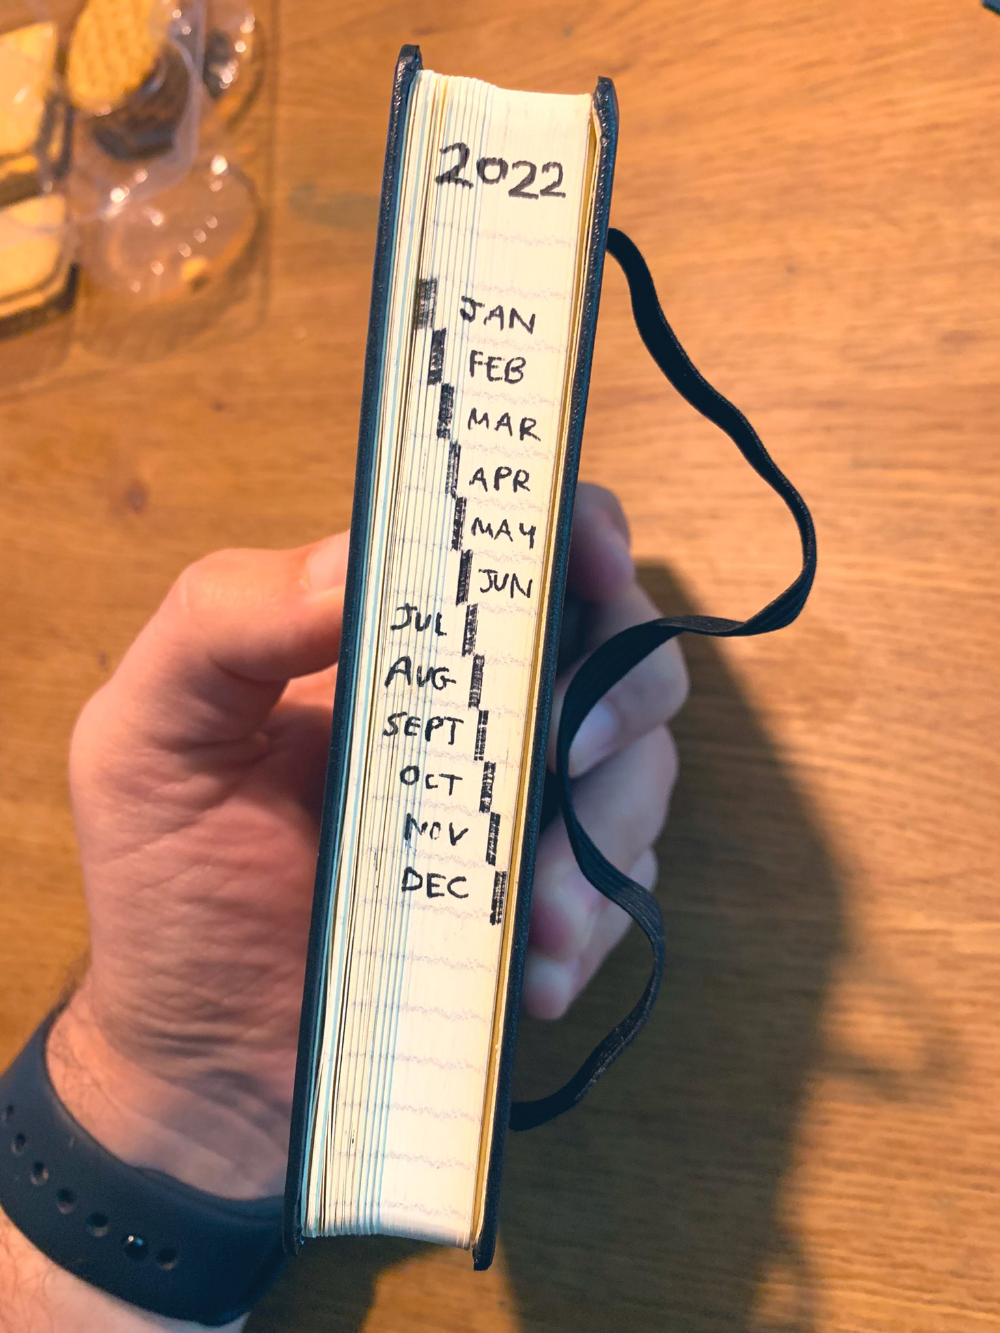 2022
JAN
FEB
MAR
APR
MAY
JUN
JUL
AUG
SEPT
OCT
NOV
DEC